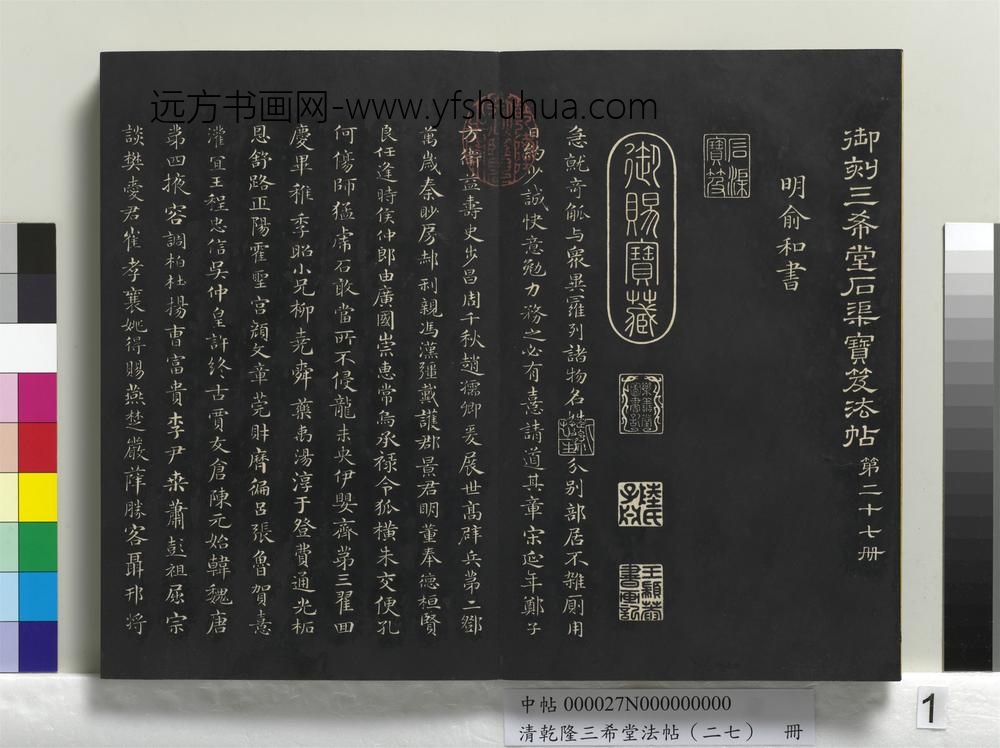 远方书画网-www.yfshuhua.com
御刻三希堂石渠寶笈法帖 第二十七册
明俞和書
石渠寶笈
御賜寶藏
急就奇觚与眾異羅列諸物名姓 分别部居不雜厠用
日約少誠快意勉力務之必有憙請道其章宋延年鄭子
方衛益壽史步昌周千秋趙孺卿爰展世高辟兵第二鄧
萬歲秦眇房郝利親馮漢彊戴護郡景君明董奉德桓賢
良任逢時侯仲郎由廣國榮惠常烏承禄令狐横朱交便孔
何傷師猛虎石敢當所不侵龍未央伊嬰齊第三翟回
慶畢稚季昭小兄柳堯舜藥禹湯淳于登費通光柘
恩舒路正陽霍聖宮顔文章莞財曆徧吕張魯賀憙
灌宜王程忠信吴仲皇許終古賈友倉陳元始韓魏唐
第四掖容調柏杜揚曹富貴李尹桑蕭彭祖屈宗
談樊愛君崔孝襄姚得賜燕楚嚴薛勝客聶邗將
中帖 000027N000000000
清乾隆三希堂法帖（二七） 冊
1